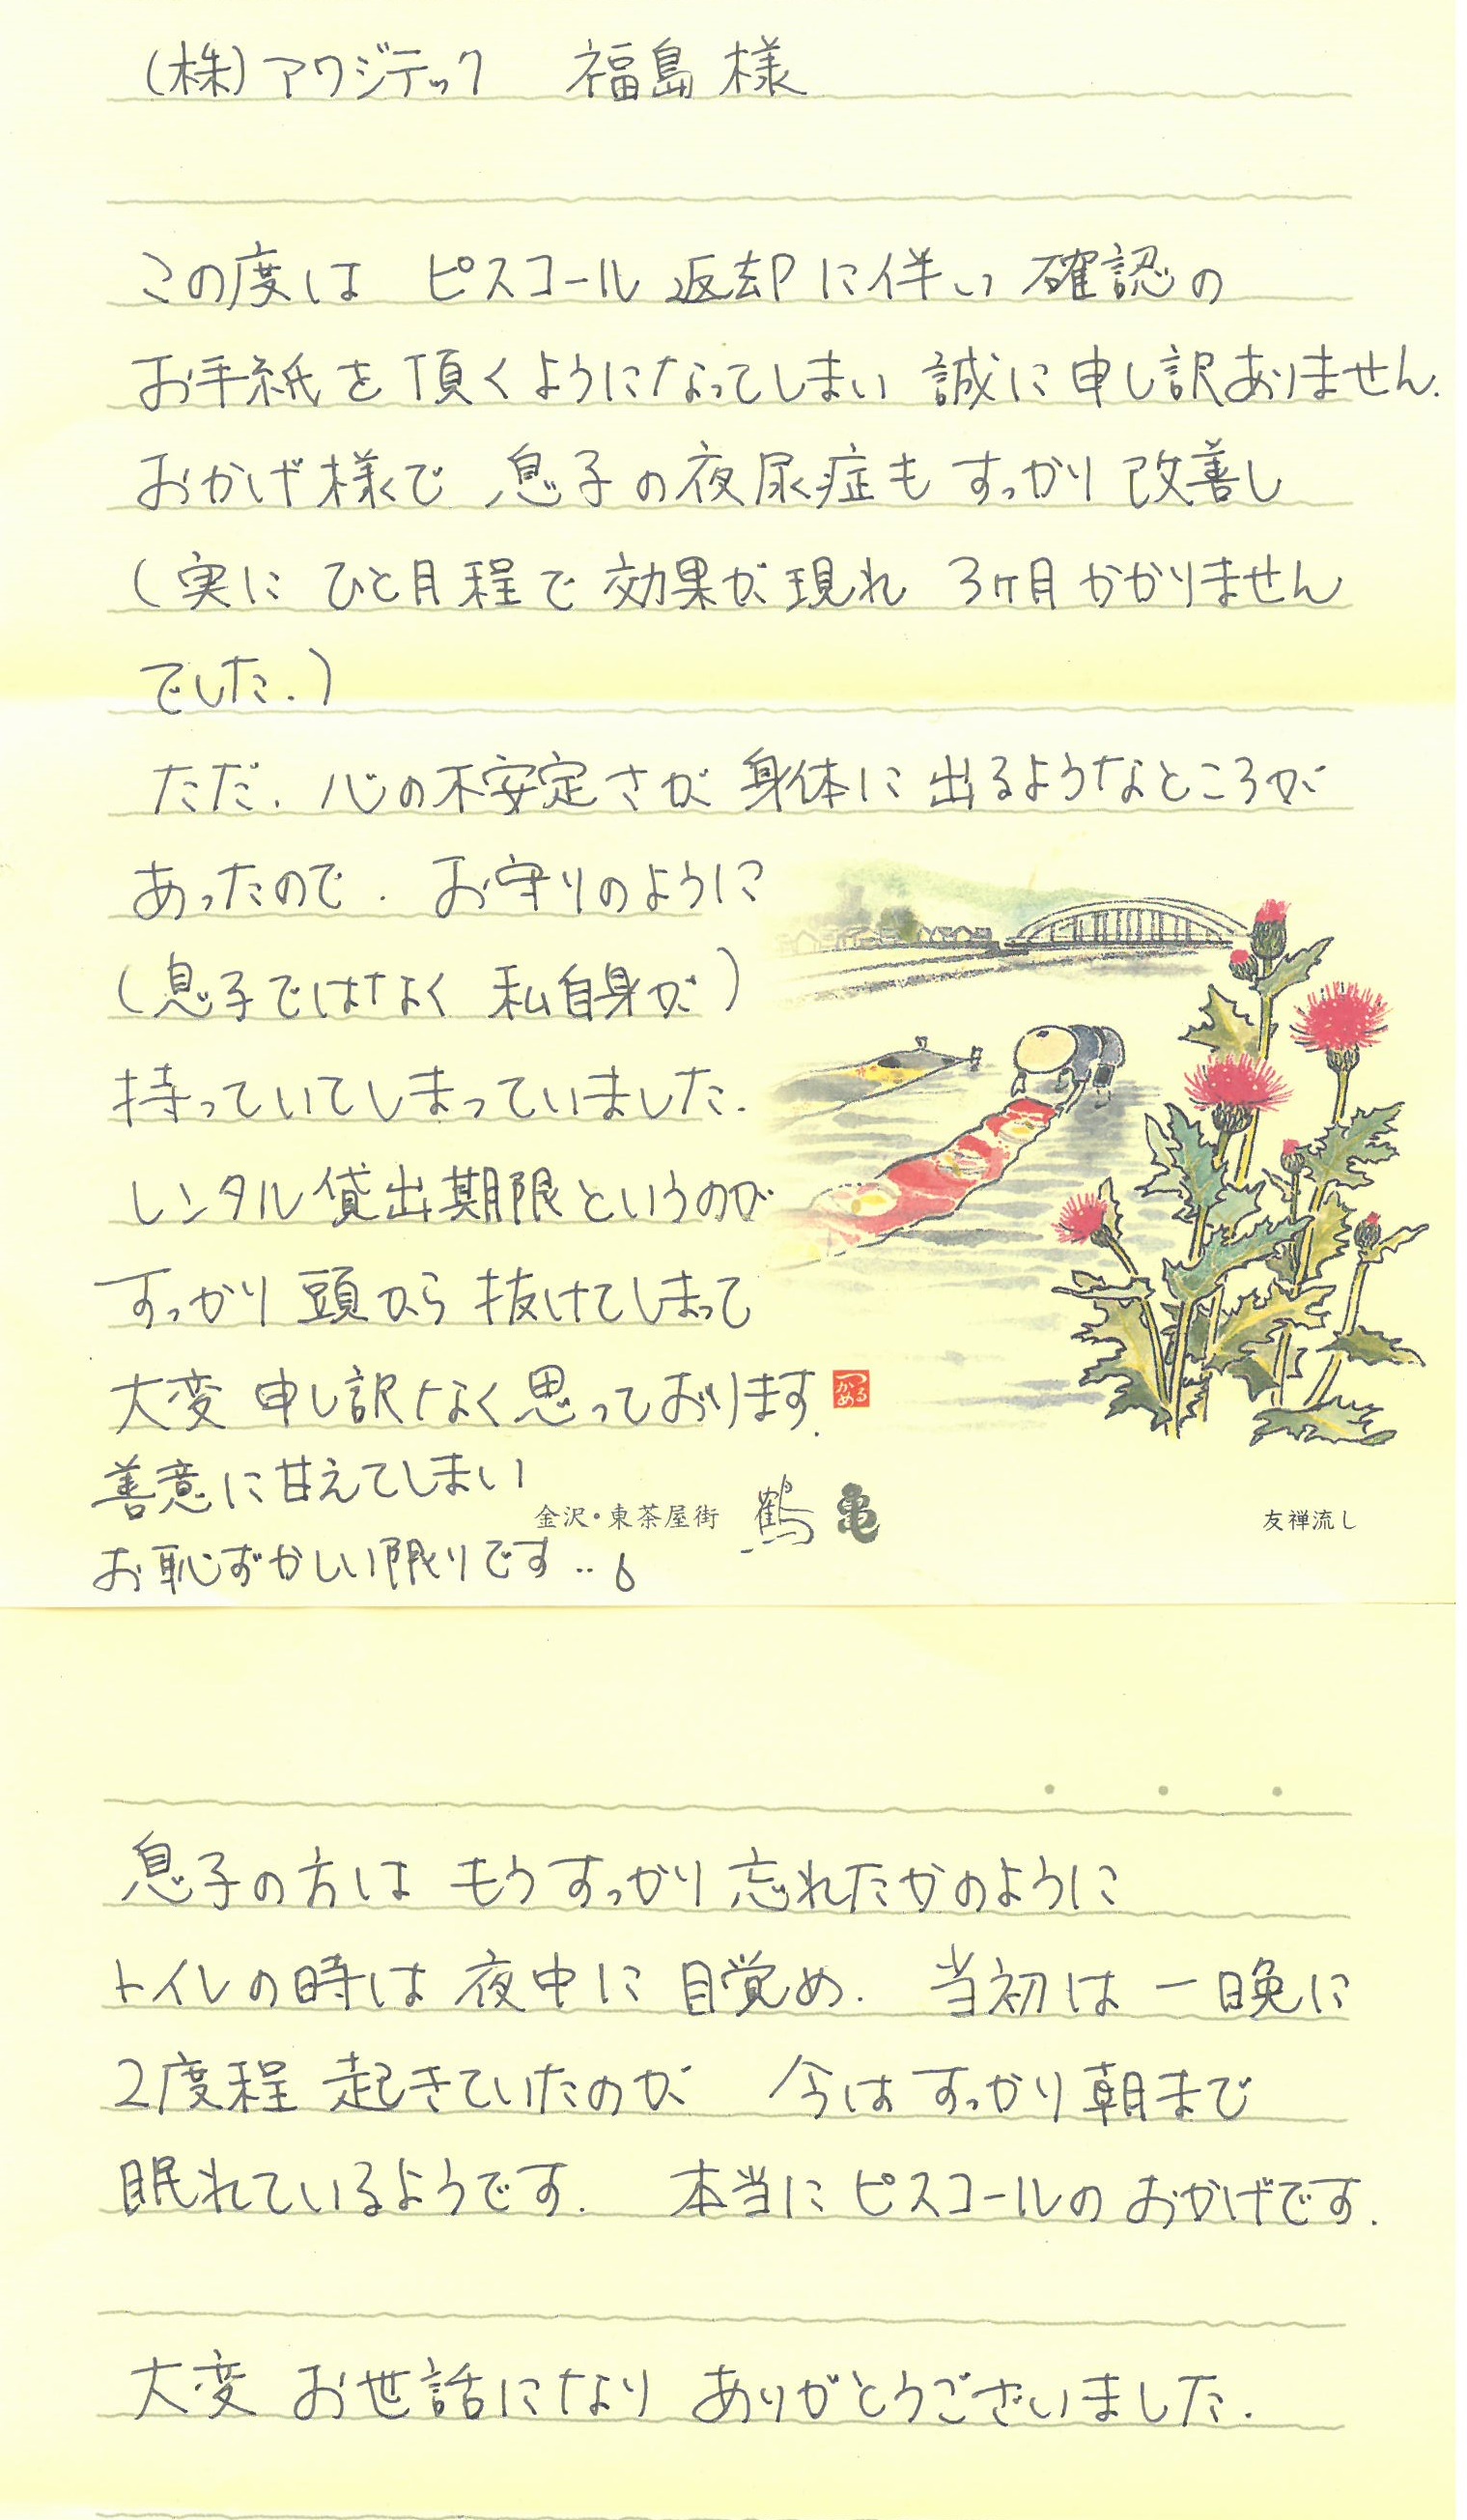 (株)アワジテック 福島様
この度は ピスコール 返却に伴い 確認の
お手紙を頂くようになってしまい 誠に申し訳ありません.
おかげ様で 息子の夜尿症も すっかり改善し
(実に ひと月程で効果が現れ 3ヶ月かかりません
でした.)
ただ. 心の不安定さが 身体に出るようなところが
あったので. お守りのように
(息子ではなく 私自身が)
持っていてしまっていました.
レンタル貸出期限というのが
すっかり頭から抜けてしまって
大変申し訳なく思っております.
つるかめ
善意に甘えてしまい
お恥ずかしい限りです..
金沢・東茶屋街 鶴亀
友禅流し
息子の方は もうすっかり忘れたかのように
トイレの時は 夜中に目覚め. 当初は一晩に
2度程起きていたのが 今はすっかり朝まで
眠れているようです. 本当にピスコールのおかげです.
大変 お世話になり ありがとうございました.